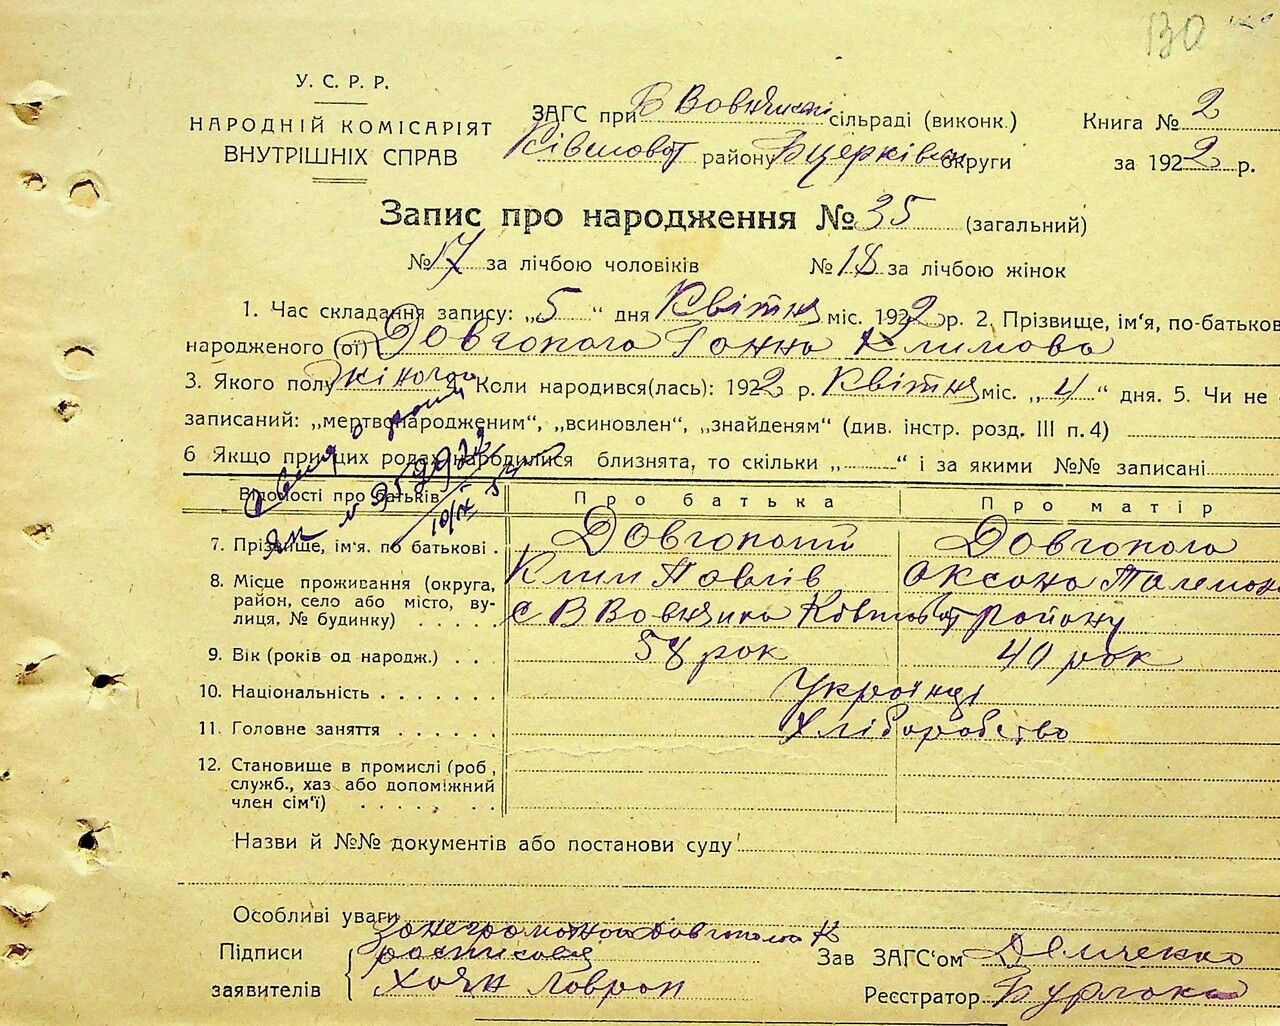 130
У. С. Р. Р.
НАРОДНІЙ КОМІСАРІЯТ
ВНУТРІШНІХ СПРАВ
ЗАГС при В Вовнянські сільраді (виконк.)
Ківшоват району Бцерківськ округи
Книга № 2
за 1922 р.
Запис про народження № 35 (загальний)
№ 17 за лічбою чоловіків № 18 за лічбою жінок
1. Час складання запису: „5“ дня Квітня міс. 1922 р. 2. Прізвище, ім'я, по-батькові
народженого (ої) Довгопола Ганна Климова
3. Якого полу жіночої 4. Коли народився(лась): 1922 р. Квітня міс. „4“ дня. 5. Чи не
записаний: „мертвонародженим“, „всиновлен“, „знайденям“ (див. інстр. розд. III п. 4)
6 Якщо при цих родах народилися близнята, то скільки „ “ і за якими №№ записані
Відомості про батьків Про батька Про матір
7. Прізвище, ім'я. по батькові . Довгополий Довгопола
8. Місце проживання (округа, Клим Павлів Оксана
район, село або місто, ву-
лиця, № будинку) . . . . . с В Вовнянка Ківшоват району
9. Вік (років од народж.) . . . 58 рок 40 рок
10. Національність . . . . . . . Українці
11. Головне заняття . . . . . . Хліборобство
12. Становище в промислі (роб,
служб., хаз або допоміжний
член сім'ї) . . . . . . .
Назви й №№ документів або постанови суду
Особливі уваги
Підписи За неграмотной Довгопола К
розписався
заявителів Хоян Гаврил
Зав ЗАГС‘ом Демченко
Реєстратор Бурлака